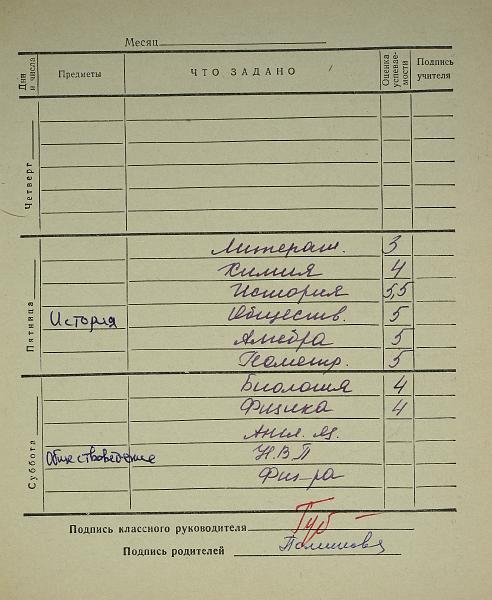 Месяц
Дни и числа Предметы ЧТО ЗАДАНО Оценка успеваемости Подпись учителя
Четверг
Пятница
Литерат. 3
Химия 4
История 5,5
История Обществ. 5
Алгебра 5
Геометр. 5
Суббота
Биология 4
Физика 4
Англ. яз.
Обществоведение Н.В.П
Физ-ра
Подпись классного руководителя
Подпись родителей